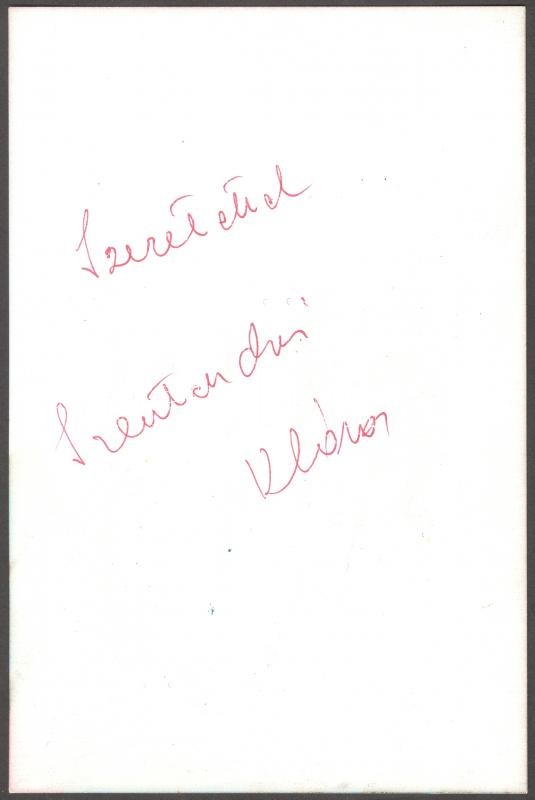 Szeretettel
Szentandrási
Klára